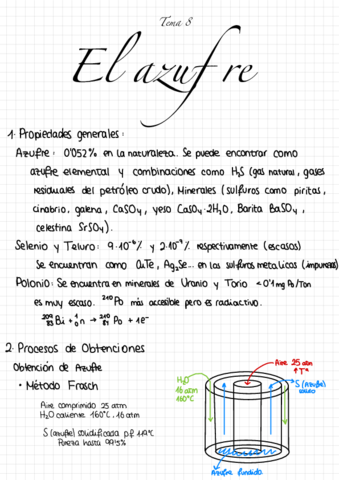 Tema 8
El azufre
1. Propiedades generales:
Azufre: 0'052% en la naturaleza. Se puede encontrar como
azufre elemental y combinaciones como H₂S (gas natural, gases
residuales del petróleo crudo), Minerales (sulfuros como piritas,
cinabrio, galena, CaSO₄, yeso CaSO₄·2H₂O, Barita BaSO₄,
celestina SrSO₄).
Selenio y Teluro: 9·10⁻⁶% y 2·10⁻⁷% respectivamente (escasos)
Se encuentran como Ag₂Se... en los sulfuros metalicos (impurezas)
Polonio: Se encuentra en minerales de Uranio y Torio <0'1mg Po/Ton
es muy escaso. ²¹⁰Po más accesible pero es radiactivo.
²⁰⁹₈₃Bi + ¹₀n → ²¹⁰₈₄Po + 1e⁻
2. Procesos de Obtenciones
Obtención de Azufre
• Método Frasch
Aire comprimido 25 atm
H₂O caliente 160°C, 16 atm
S (azufre) solidificada p.f. 119°C
Pureza hasta 99'5%
Aire 25 atm
↑Tª
H₂O
16 atm
160°C
S (azufre)
Azufre fundido